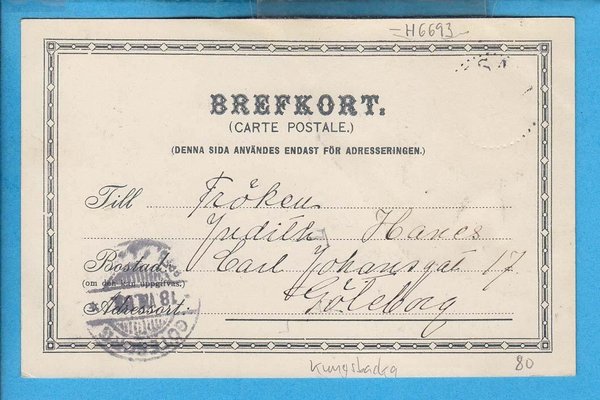 H6693
BREFKORT.
(CARTE POSTALE.)
(DENNA SIDA ANVÄNDES ENDAST FÖR ADRESSERINGEN.)
Till Fröken
Judith
Bostad Carl Johansgat 17
(om den kan uppgifvas.)
Adressort: Göteborg
18
GÖTEBORG
Kungsbacka
80